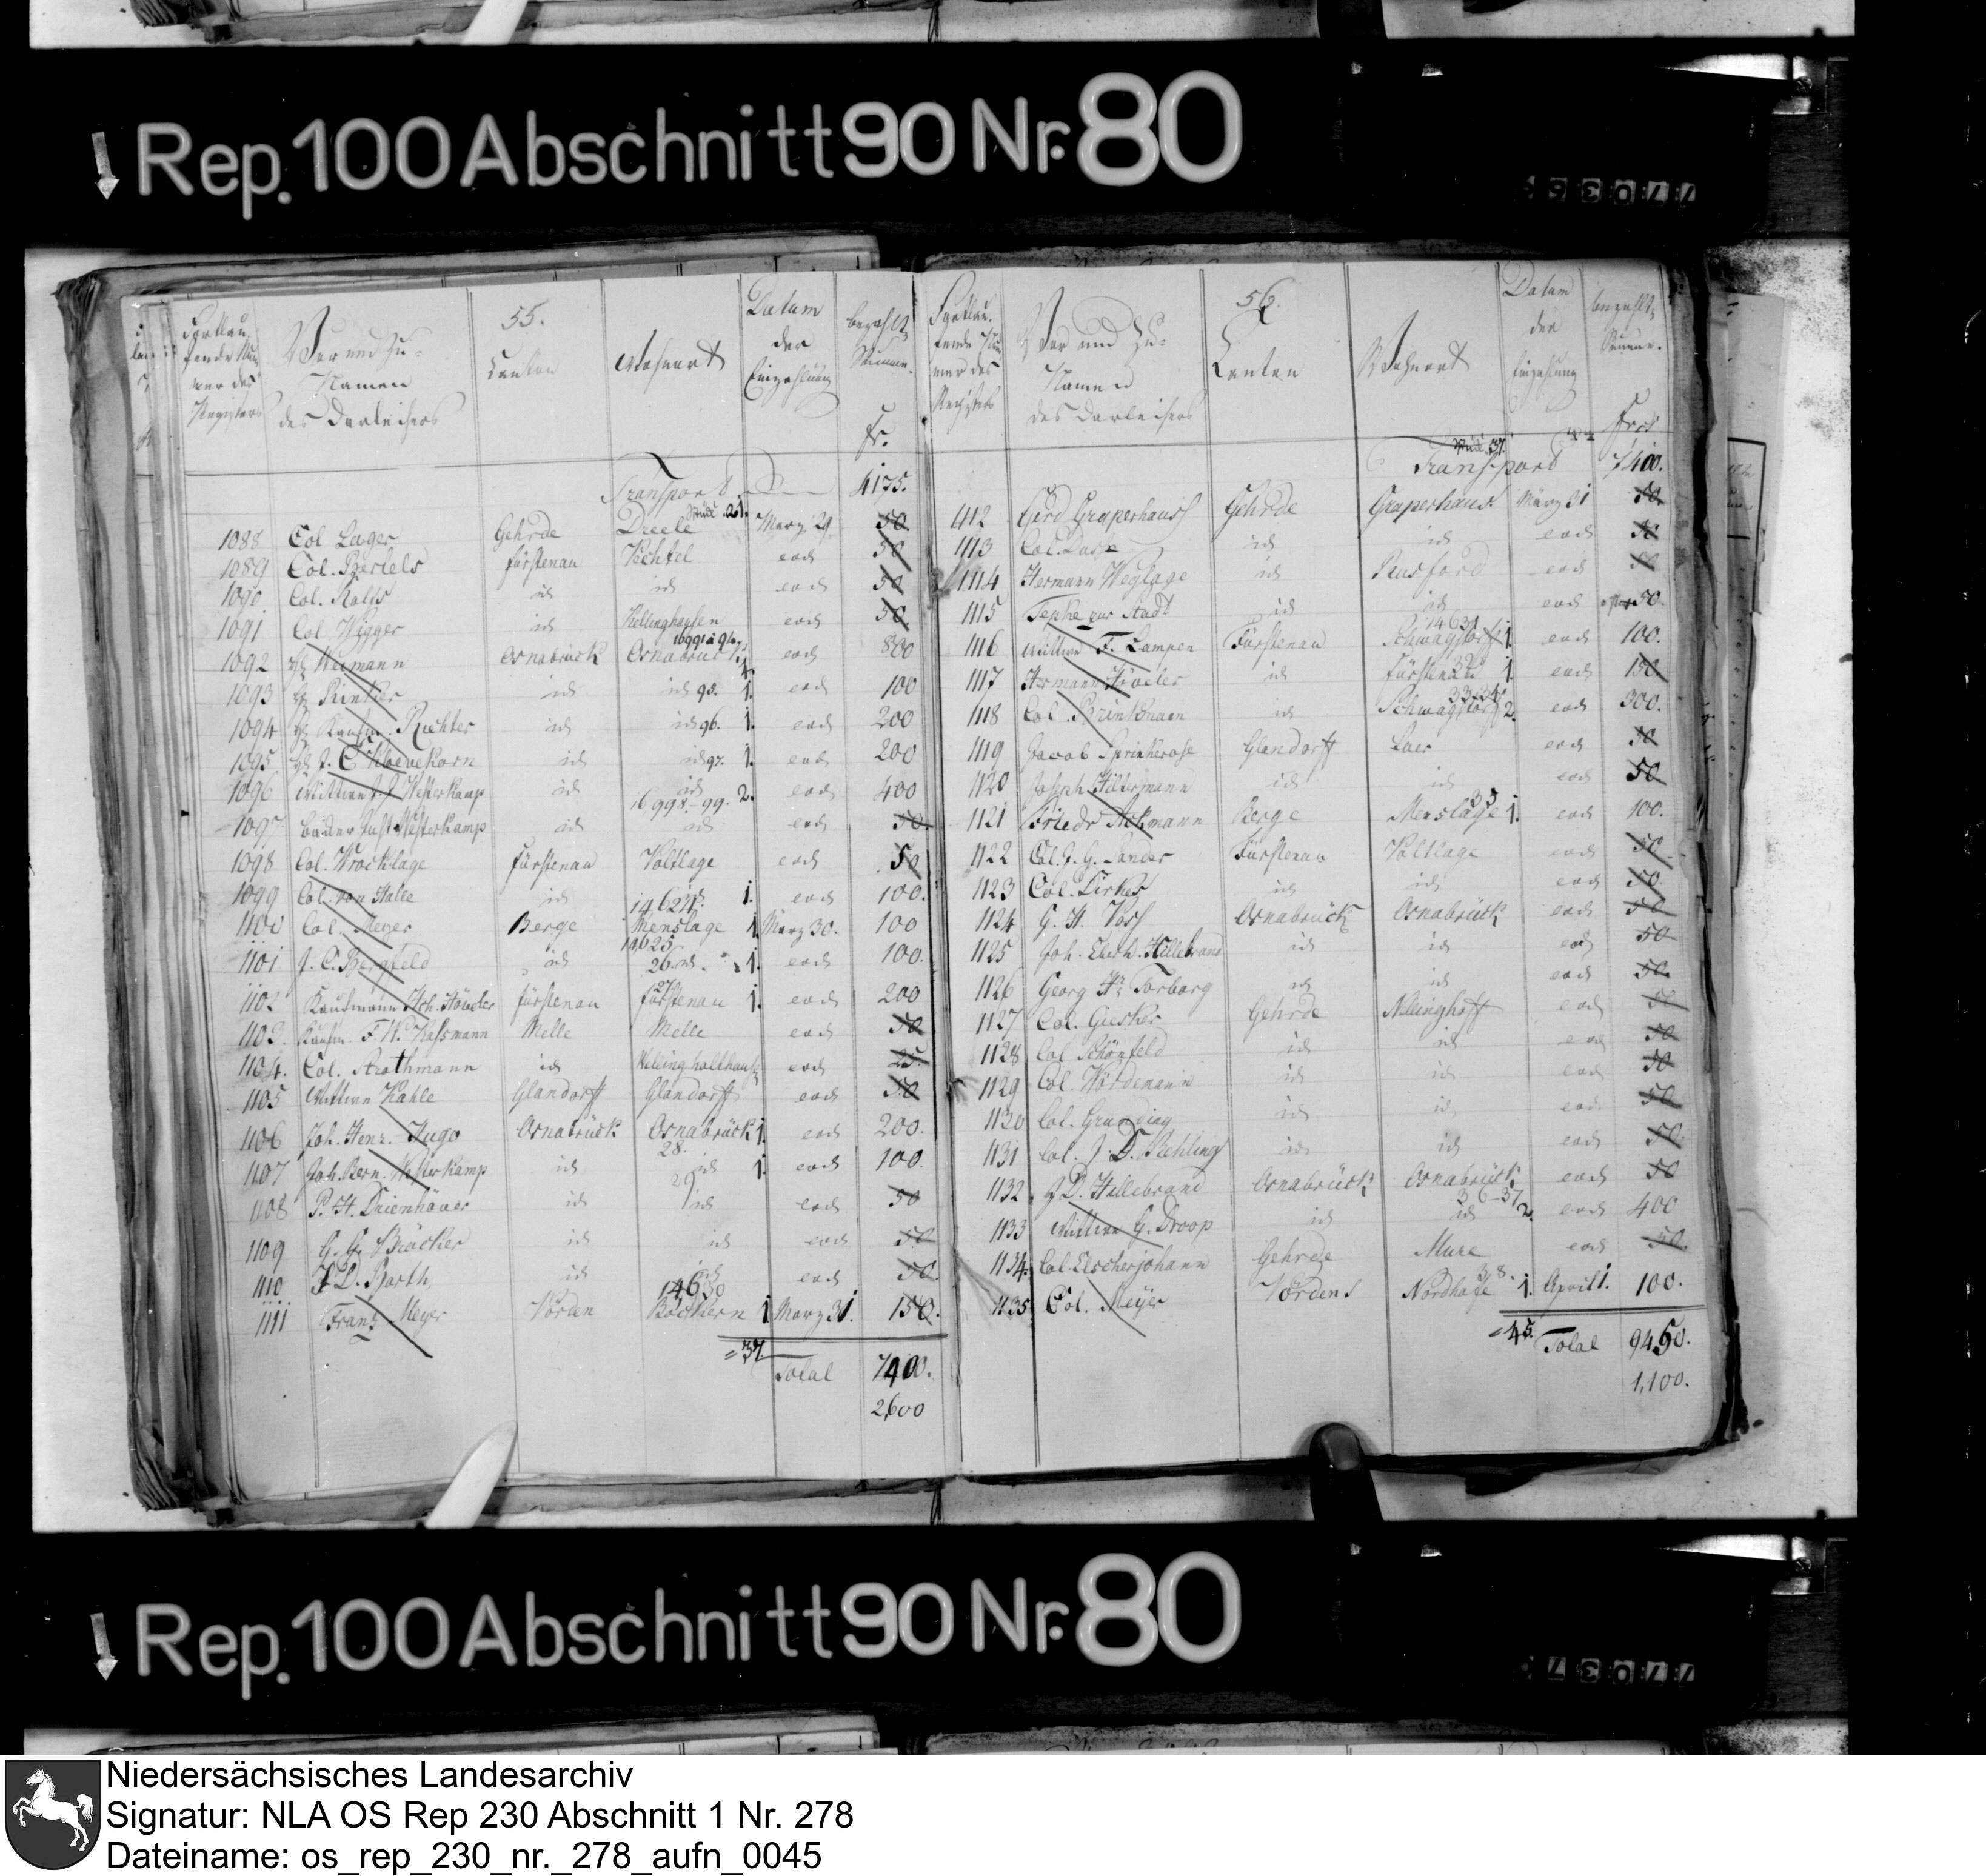 Rep. 100 Abschnitt 90 Nr. 80
55.
Fortlau-
fende Num
mer des
Registers
Vor und Zu-
Namen
des Darleihers
Canton
Wohnort
Datum
der
Einzahlung
bezahlte
Summe.
fr.
Transport 4175.
1088 Col Lager Gehrde Drele 21. Marz 29. 50.
1089 Col. Bertels fürstenau Vechtel eod 50
1090 Col. Rolfs id id eod 50
1091 Col Wigger id Kellinghausen eod 50
1092 Hr Niemann Osnabrück Osnabrück eod 800
1093 Hr Rinker id id 95. 1. eod 100
1094 Hr Kaufm. Richter id id 96. 1. eod 200
1095 Hr J. C. Havekorn id id 97. 1. eod 200
1096 Wittwe Westerkamp id id 2. eod 400
1097 Just Westerkamp id id eod 50
1098 Col. Wrocklage fürstenau Voltlage eod 50
1099 Col. von Halle id id 1. eod 100.
1100 Col. Meyer Berge Menslage 1 Marz 30. 100
14625
1101 J. C. Bergfeld id 26. id. 1. eod 100.
1102 Kaufmann Höveler fürstenau fürstenau 1. eod 200
1103. Kaufm. F W. Kassmann Melle Melle eod 50
1104. Col. Arothmann id eod 25.
1105 Wittwe Kahle Glandorff Glandorff eod 50
1106 Joh. Henr. Hugo Osnabrück Osnabrück 1. eod 200.
28.
1107 Joh. Bern. Westerkamp id id 1. eod 100.
29
1108 P. H. Drienhöver id id eod 50
1109 G. G. Bröcker id id eod 50
1110 J D. Barth, id id eod 50.
14630
1111 Franz Meyer Vörden Bockern 1 Marz 31. 150.
= 37. Total 7400.
2,600
56.
Fortlau-
fende Num
mer des
Registers
Vor und Zu-
Namen
des Darleihers
Canton
Wohnort
Datum
der
Einzahlung
bezahlte
Summe.
frcs
37.
Transport 7400.
1112 Gerd Graperhaus Gehrde Graperhaus. März 31 50.
1113 id id eod 50
1114 Hermann Weglage id Rusford eod 50
1115 Tepke zur Stadt id id eod 50.
14631
1116 Wittwe F. Lampen Fürstenau Schwagstorf 1. eod 100.
1117 Hermann Höveler id fürstenau 1. eod 150.
33-34
1118 Col. Brinkmann id Schwagstorf 2. eod 300.
1119 Jacob Sprinkerose Glandorff Laer eod 50
1120 Joseph Hiltermann id id eod 50
35
1121 Friedr Ackmann Berge Menslage 1. eod 100.
1122 Col. J. G. Sander Fürstenau Voltlage eod 50.
1123 Col. Dirkes id id eod 50.
1124 G. H. Voss Osnabrück Osnabrück eod 50
1125 Joh. Eberh. Hillebrand id id eod 50
1126 Georg Hr Torbarg id id eod 50.
1127 Col. Giesker Gehrde Nellinghoff eod 50
1128 Col Schönfeld id id eod 50
1129 Col. Wördemann id id eod 50
1130 Col. Grunding id id eod. 50
1131 Col. J. D. Rehling id id eod 50.
1132 J D. Hillebrand Osnabrück Osnabrück eod 50
36-37
1133 Wittwe G. Droop id id 2. eod 400
1134. Col. Elscherjohann Gehrde eod 50.
38.
1135 Col. Meyer Vörden Nordhofe 1. April 1. 100.
= 45. Total 9450.
1,100.
Rep. 100 Abschnitt 90 Nr. 80
Niedersächsisches Landesarchiv
Signatur: NLA OS Rep 230 Abschnitt 1 Nr. 278
Dateiname: os_rep_230_nr._278_aufn_0045